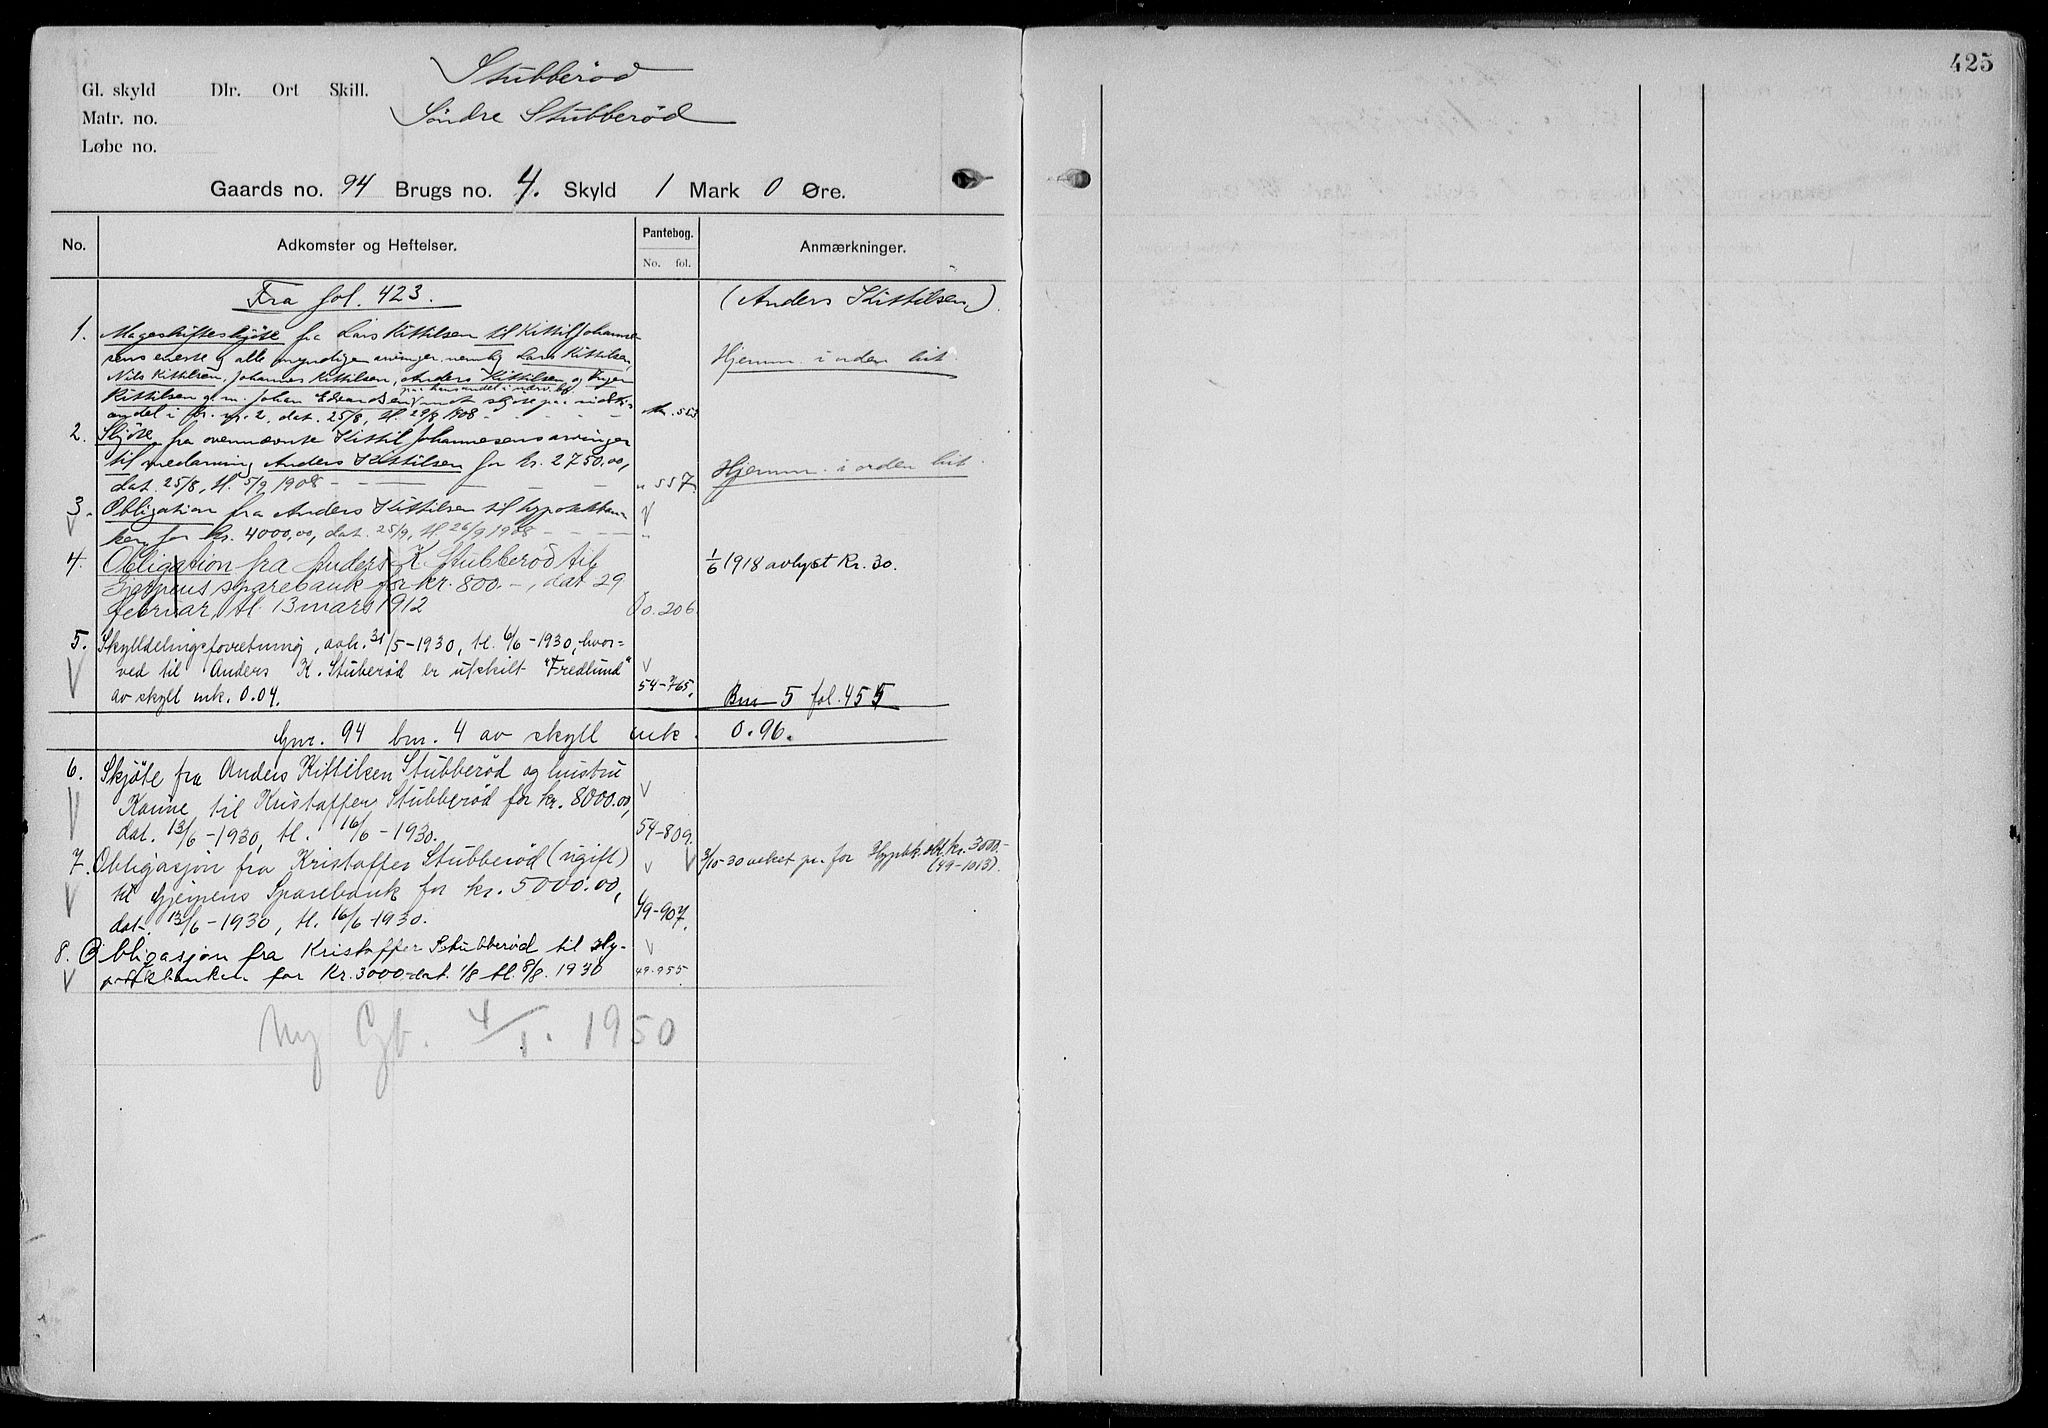 425
Stubberød
Søndre Stubberød
Gl. skyld Dlr. Ort Skill.
Matr. no.
Løbe no.
Gaards no. 94 Brugs no. 4. Skyld 1 Mark 0 Øre.
No. Adkomster og Heftelser. Pantebog. No. fol. Anmærkninger.
Fra fol. 423. (Anders Kittilsen)
1. Mageskifteskjøte fra Lars Kittilsen til Kittil Johanne-
sens eneste og alle myndige arvinger nemlig Lars Kittilsen,
Hjemm. i orden hit.
Nils Kittilsen, Johannes Kittilsen, Anders Kittilsen og Inger
Kittilsen g. m. Johan Edvardsen mot skjøte paa
andel i br. nr. 2, dat. 25/8, tl. 29/8 1908
2. Skjøte fra ovennævnte Kittil Johannesens arvinger
til medarving Anders Kittilsen for kr. 2750.00,
Hjemm. i orden hit.
dat. 25/8, tl. 5/9 1908 - - - - - - " 557.
3. Obligation fra Anders Kittilsen til hypotekban-
ken for kr. 4000,00, dat. 25/9, tl. 26/9 1908 - - - - "
4. Obligation fra Anders K. Stubberød til 1/6 1918 avlyst Kr. 30.
Gjerpens sparebank for kr. 800.-, dat 29
februar, tl. 13 mars 1912 206
5. Skylddelingsforretning, avh. 31/5-1930, tl. 6/6-1930, hvor-
ved til Anders K. Stuberød er utskilt "Fredlund"
av skyll mk. 0.04. 54-765. Bnr 5 fol. 455
Gnr. 94 bnr. 4 av skyll mk. 0.96.
6. Skjøte fra Anders Kittilsen Stubberød og hustru
Karine til Kristoffer Stubberød for kr. 8000.00,
dat. 13/6-1930, tl. 16/6-1930. 54-809.
7. Obligasjon fra Kristoffer Stubberød (ugift) 3/10-30 veket pr. for Hypbk. obl. kr. 3000.-
(49-1013).
til Gjerpens Sparebank for kr. 5000.00,
dat. 13/6-1930, tl. 16/6-1930. 49-907.
8. Obligasjon fra Kristoffer Stubberød til Hy-
potekbanken for Kr. 3000 dat. 1/8 tl. 8/8. 1930 49-955
Ny Gb. 4/1. 1950